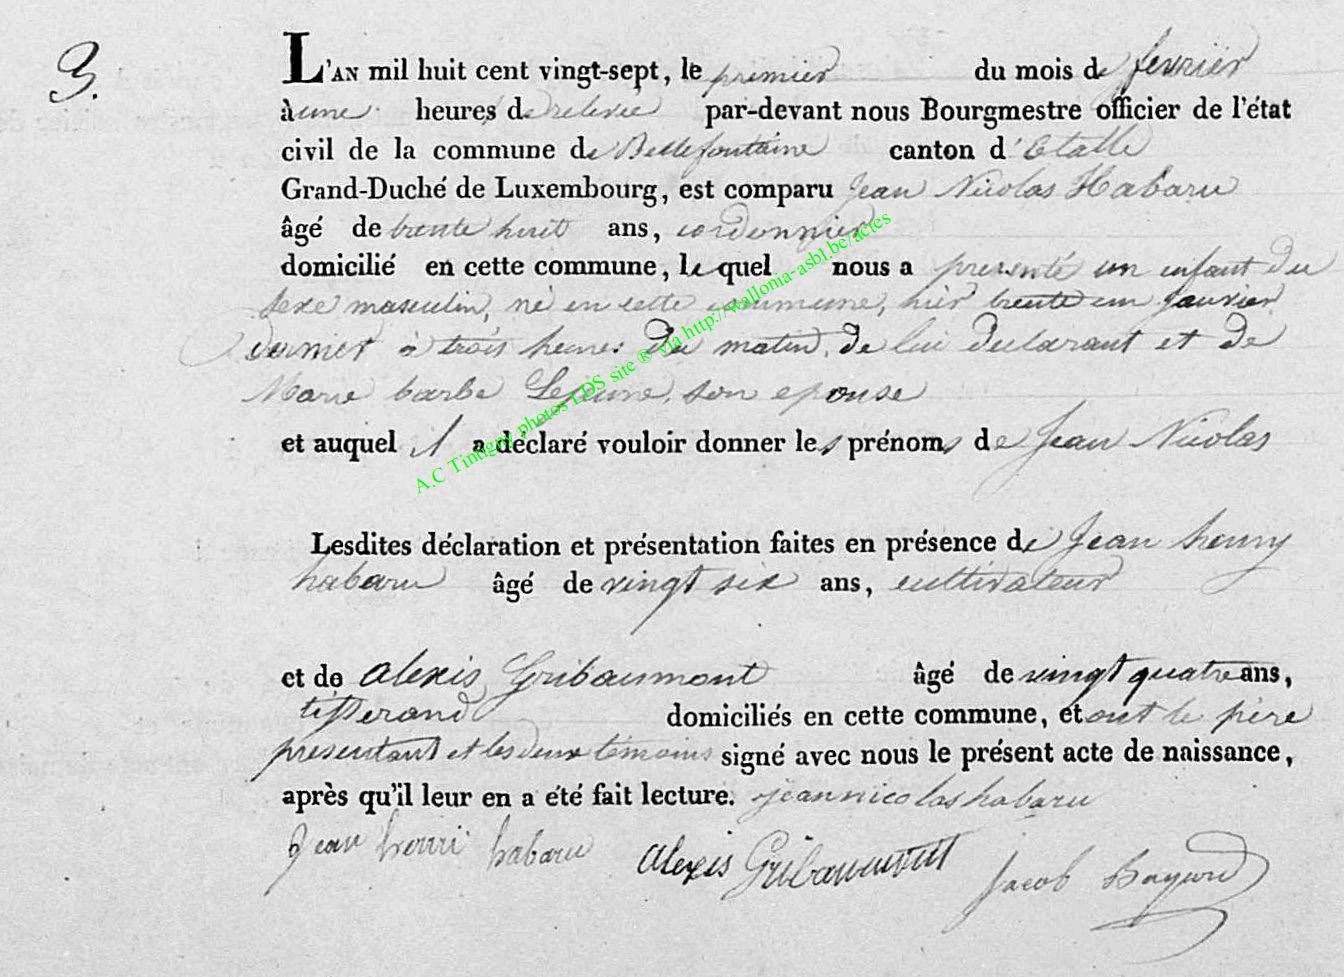 3.
L'AN mil huit cent vingt-sept, le premier du mois de fevrier
à une heures de relevée par-devant nous Bourgmestre officier de l'état
civil de la commune de Bellefontaine canton d'Etalle
Grand-Duché de Luxembourg, est comparu Jean Nicolas Habaru
âgé de trente huit ans, cordonnier
domicilié en cette commune, lequel nous a presenté un enfant du
sexe masculin, né en cette commune, hier trente un janvier
dernier à trois heures du matin, de lui declarant et de
Marie barbe Lejeune, son epouse
et auquel il a déclaré vouloir donner les prénoms de Jean Nicolas
Lesdites déclaration et présentation faites en présence de Jean henry
habaru âgé de vingt six ans, cultivateur
et de alexis Gribaumont âgé de vingt quatre ans,
tisserand domiciliés en cette commune, et ont le père
presentant et les deux témoins signé avec nous le présent acte de naissance,
après qu'il leur en a été fait lecture. jean nicolas habaru
Jean henri habaru alexis Gribaumont Jacob
A.C Tintigny photos LDS site ® via http://wallonia-asbl.be/actes